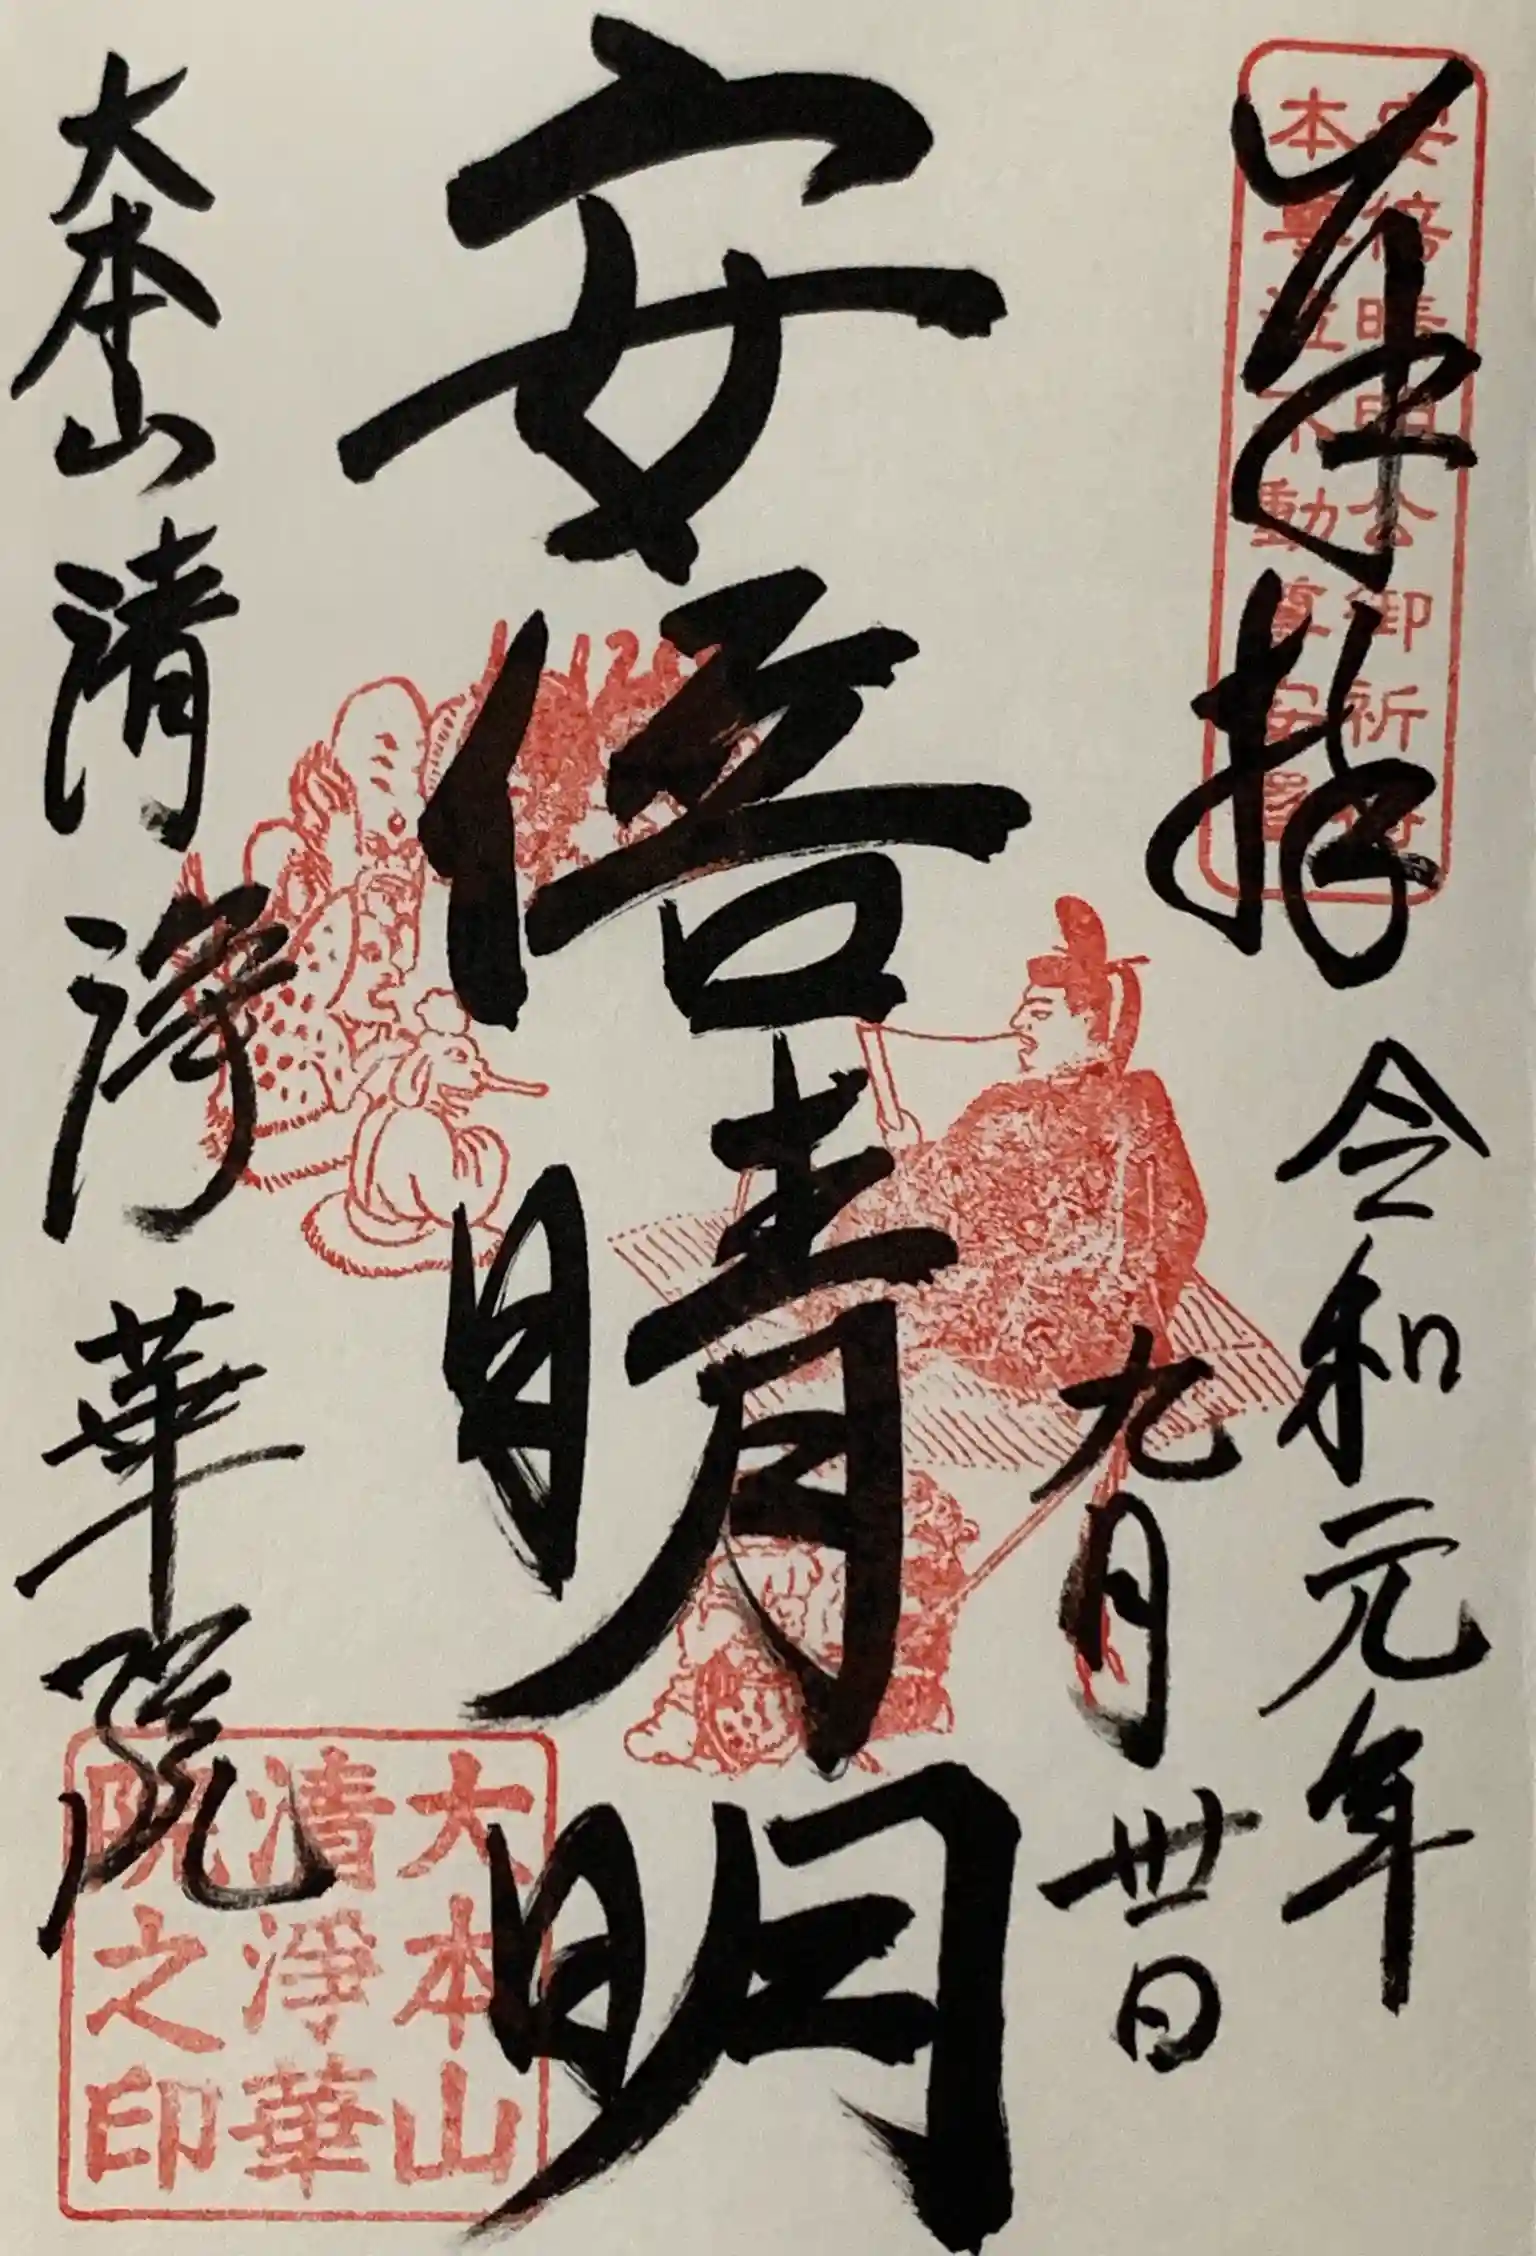 奉拝
安倍晴明公御祈祷
本尊泣不動尊安置
令和元年
九月卅日
安倍晴明
大本山清浄華院
大本山
清淨華
院之印